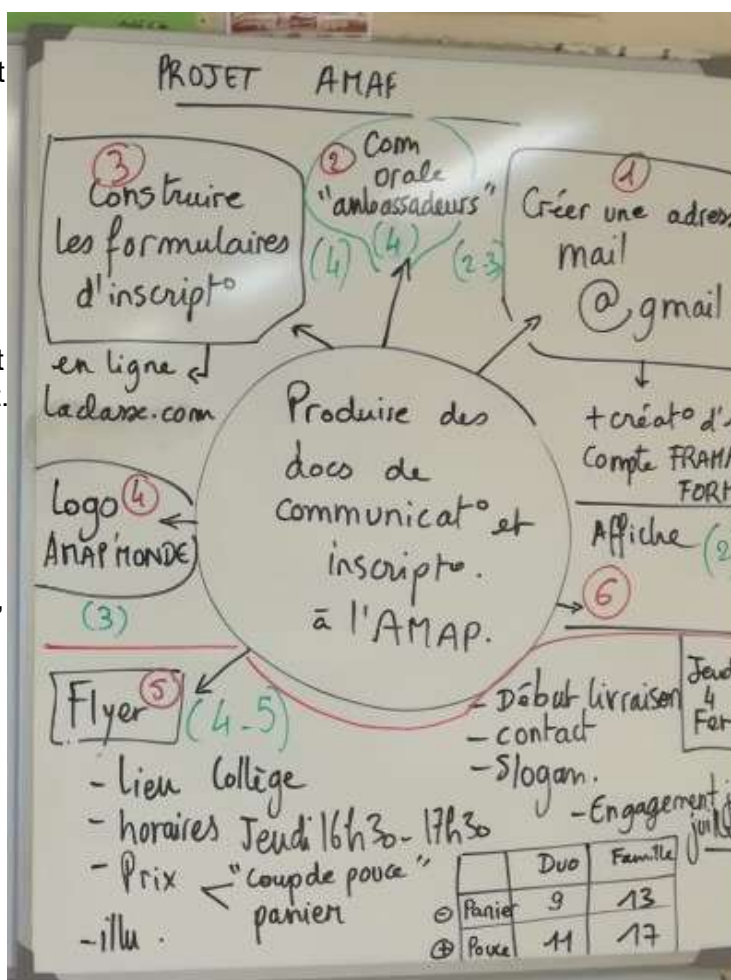 PROJET AMAP
3
Construire
les formulaires
d'inscript°
en ligne
Laclasse.com
2 Com
orale
"ambassadeurs"
(4) (4) (2-3)
1
Créer une adres
mail
@gmail
+ créat° d'
Compte FRAMA
FORM
Produire des
docs de
communicat° et
inscript°.
à l'AMAP.
Logo 4
AMAP'MONDE
(3)
Affiche (2
6
Flyer 5
(4-5)
- Lieu Collège
- horaires Jeudi 16h30-17h30
- Prix "coup de pouce"
panier
- illu.
- Début livraison
- contact
- Slogan.
Jeud
4
- Engagement j
juil
Duo Famille
⊖ Panier 9 13
⊕ Pouce 11 17